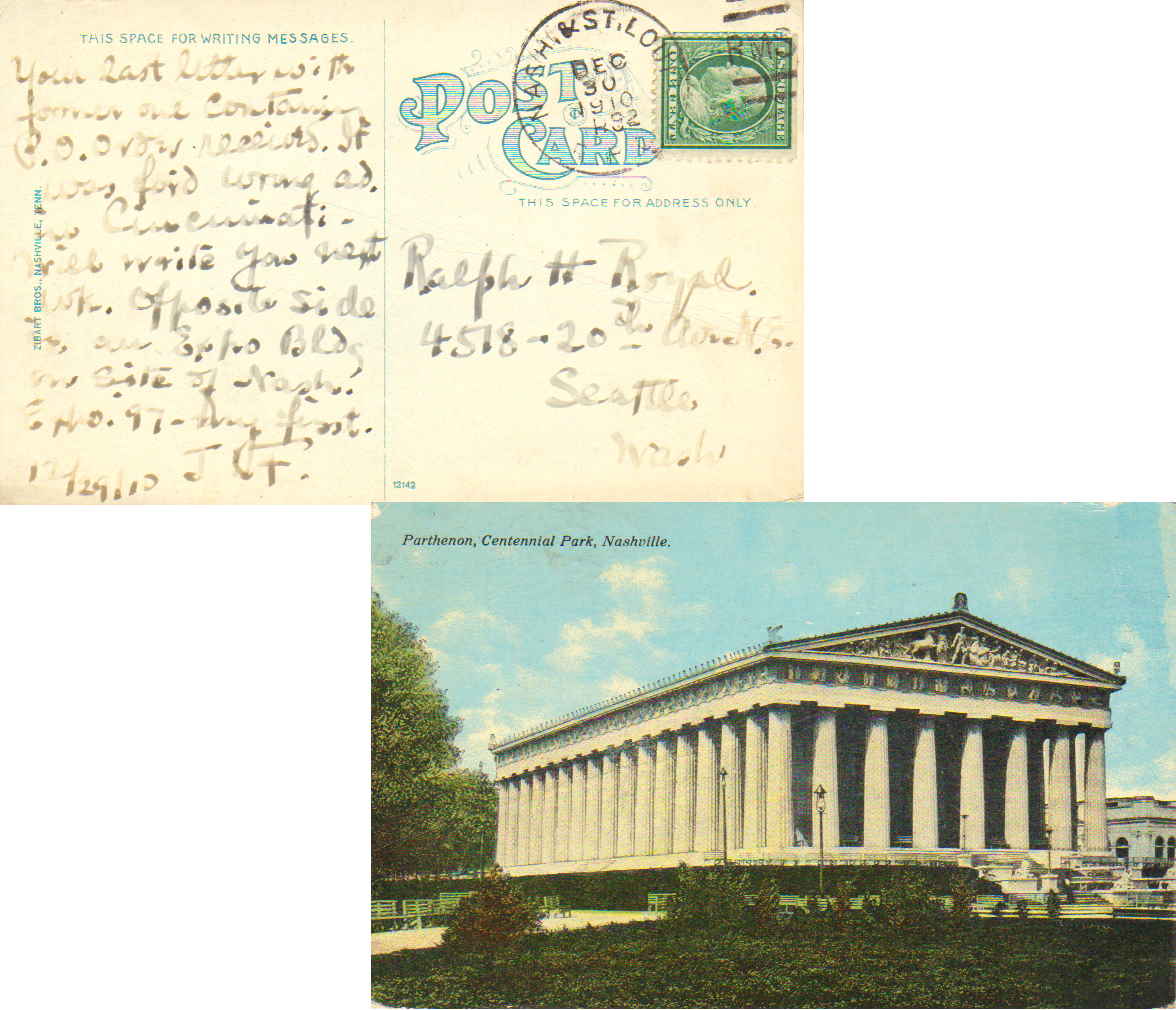 THIS SPACE FOR WRITING MESSAGES.
Your last letter with
former one Contain-
P.O. Order receipts. It
was for'd wrong ad.
to Cincinnati-
Will write you next
wk. Opposite side
is an Expo Bldg
on site of Nash.
Expo. 97- Any first.
12/29/10 J
ZIBART BROS., NASHVILLE, TENN.
POST CARD
NASH. & ST. LOU
DEC
30
1910
R.P.O.
THIS SPACE FOR ADDRESS ONLY.
Ralph H Royal.
4518-20th Av. N.E.
Seattle
Wash
12142
Parthenon, Centennial Park, Nashville.